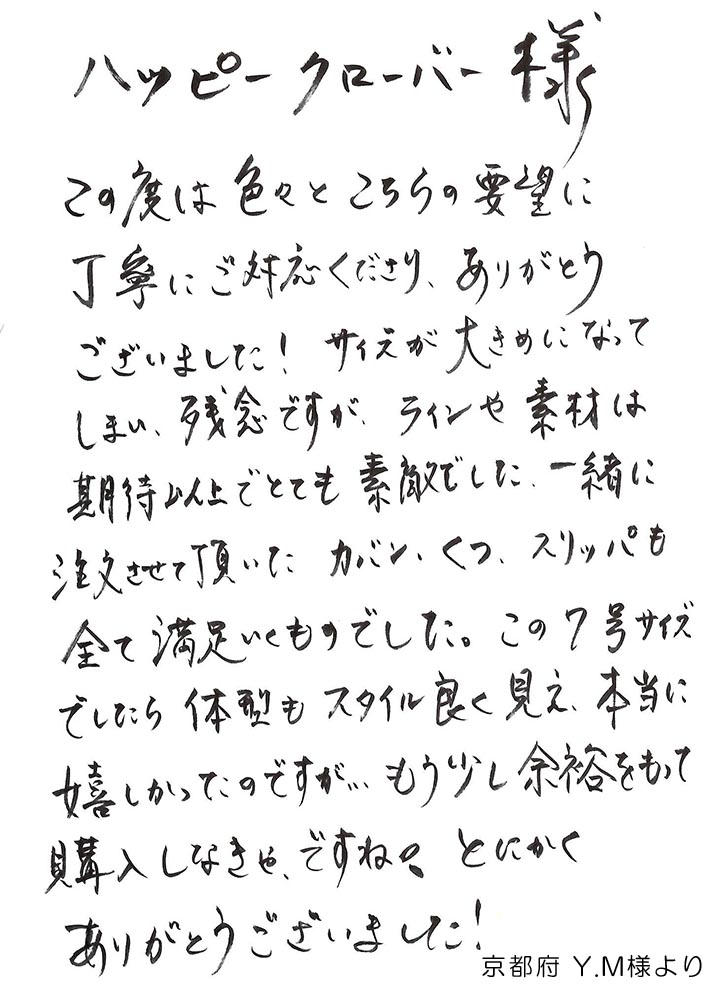 ハッピークローバー様
この度は色々とこちらの要望に
丁寧にご対応くださり、ありがとう
ございました! サイズが大きめになって
しまい、残念ですが、ラインや素材は
期待以上でとても素敵でした。一緒に
注文させて頂いた カバン、くつ、スリッパも
全て満足いくものでした。この7号サイズ
でしたら体型もスタイル良く見え、本当に
嬉しかったのですが… もう少し余裕をもって
購入しなきゃ、ですね。とにかく
ありがとうございました!
京都府 Y.M様より